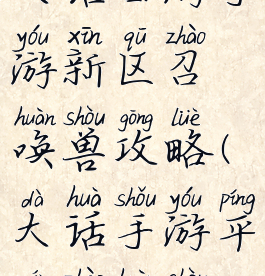 yóu xīn qū zhào
游新区召
huàn shòu gōng lüè
唤兽攻略(
dà huà shǒu yóu píng
大话手游平